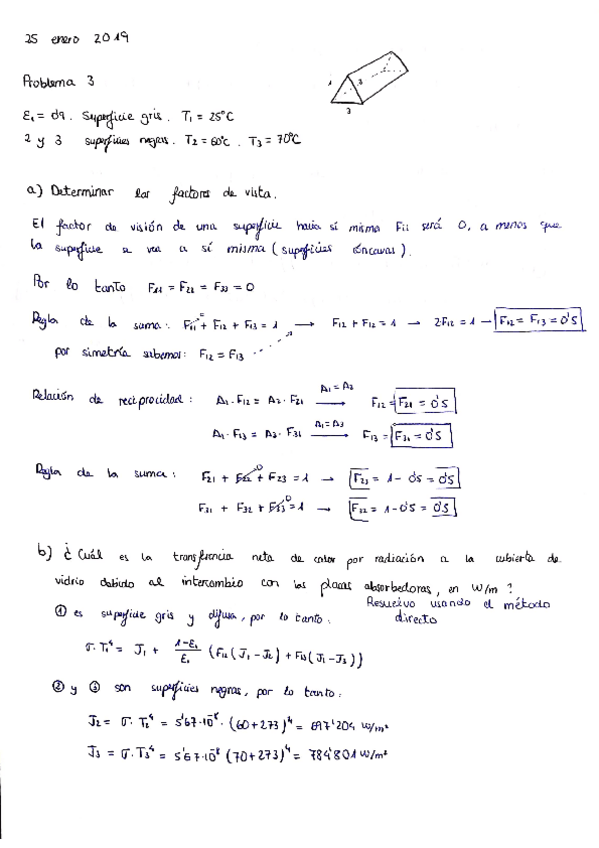 25 enero 2019
Problema 3
ε₁ = 0'9. Superficie gris. T₁ = 25°C
2 y 3 superficies negras. T₂ = 60°C. T₃ = 70°C
1
3
a) Determinar los factores de vista.
El factor de visión de una superficie hacia sí misma Fii será 0, a menos que
la superficie se vea a sí misma (superficies cóncavas).
Por lo tanto F₁₁ = F₂₂ = F₃₃ = 0
Regla de la suma: F₁₁ + F₁₂ + F₁₃ = 1 → F₁₂ + F₁₂ = 1 → 2F₁₂ = 1 → F₁₂ = F₁₃ = 0'5
por simetría sabemos: F₁₂ = F₁₃
Relación de reciprocidad: A₁·F₁₂ = A₂·F₂₁ A₁ = A₂ → F₁₂ = F₂₁ = 0'5
A₁·F₁₃ = A₃·F₃₁ A₁ = A₃ → F₁₃ = F₃₁ = 0'5
Regla de la suma: F₂₁ + F₂₂ 0 + F₂₃ = 1 → F₂₃ = 1 - 0'5 = 0'5
F₃₁ + F₃₂ + F₃₃ 0 = 1 → F₃₂ = 1 - 0'5 = 0'5
b) ¿Cuál es la transferencia neta de calor por radiación a la cubierta de
vidrio debido al intercambio con las placas absorbedoras, en W/m?
Resuelvo usando el método
directo
① es superficie gris y difusa, por lo tanto:
σ·T₁⁴ = J₁ + (1-ε₁)/ε₁ (F₁₂(J₁ - J₂) + F₁₃(J₁ - J₃))
② y ③ son superficies negras, por lo tanto:
J₂ = σ·T₂⁴ = 5'67·10⁻⁸·(60+273)⁴ = 697'204 W/m²
J₃ = σ·T₃⁴ = 5'67·10⁻⁸ (70+273)⁴ = 784'801 W/m²